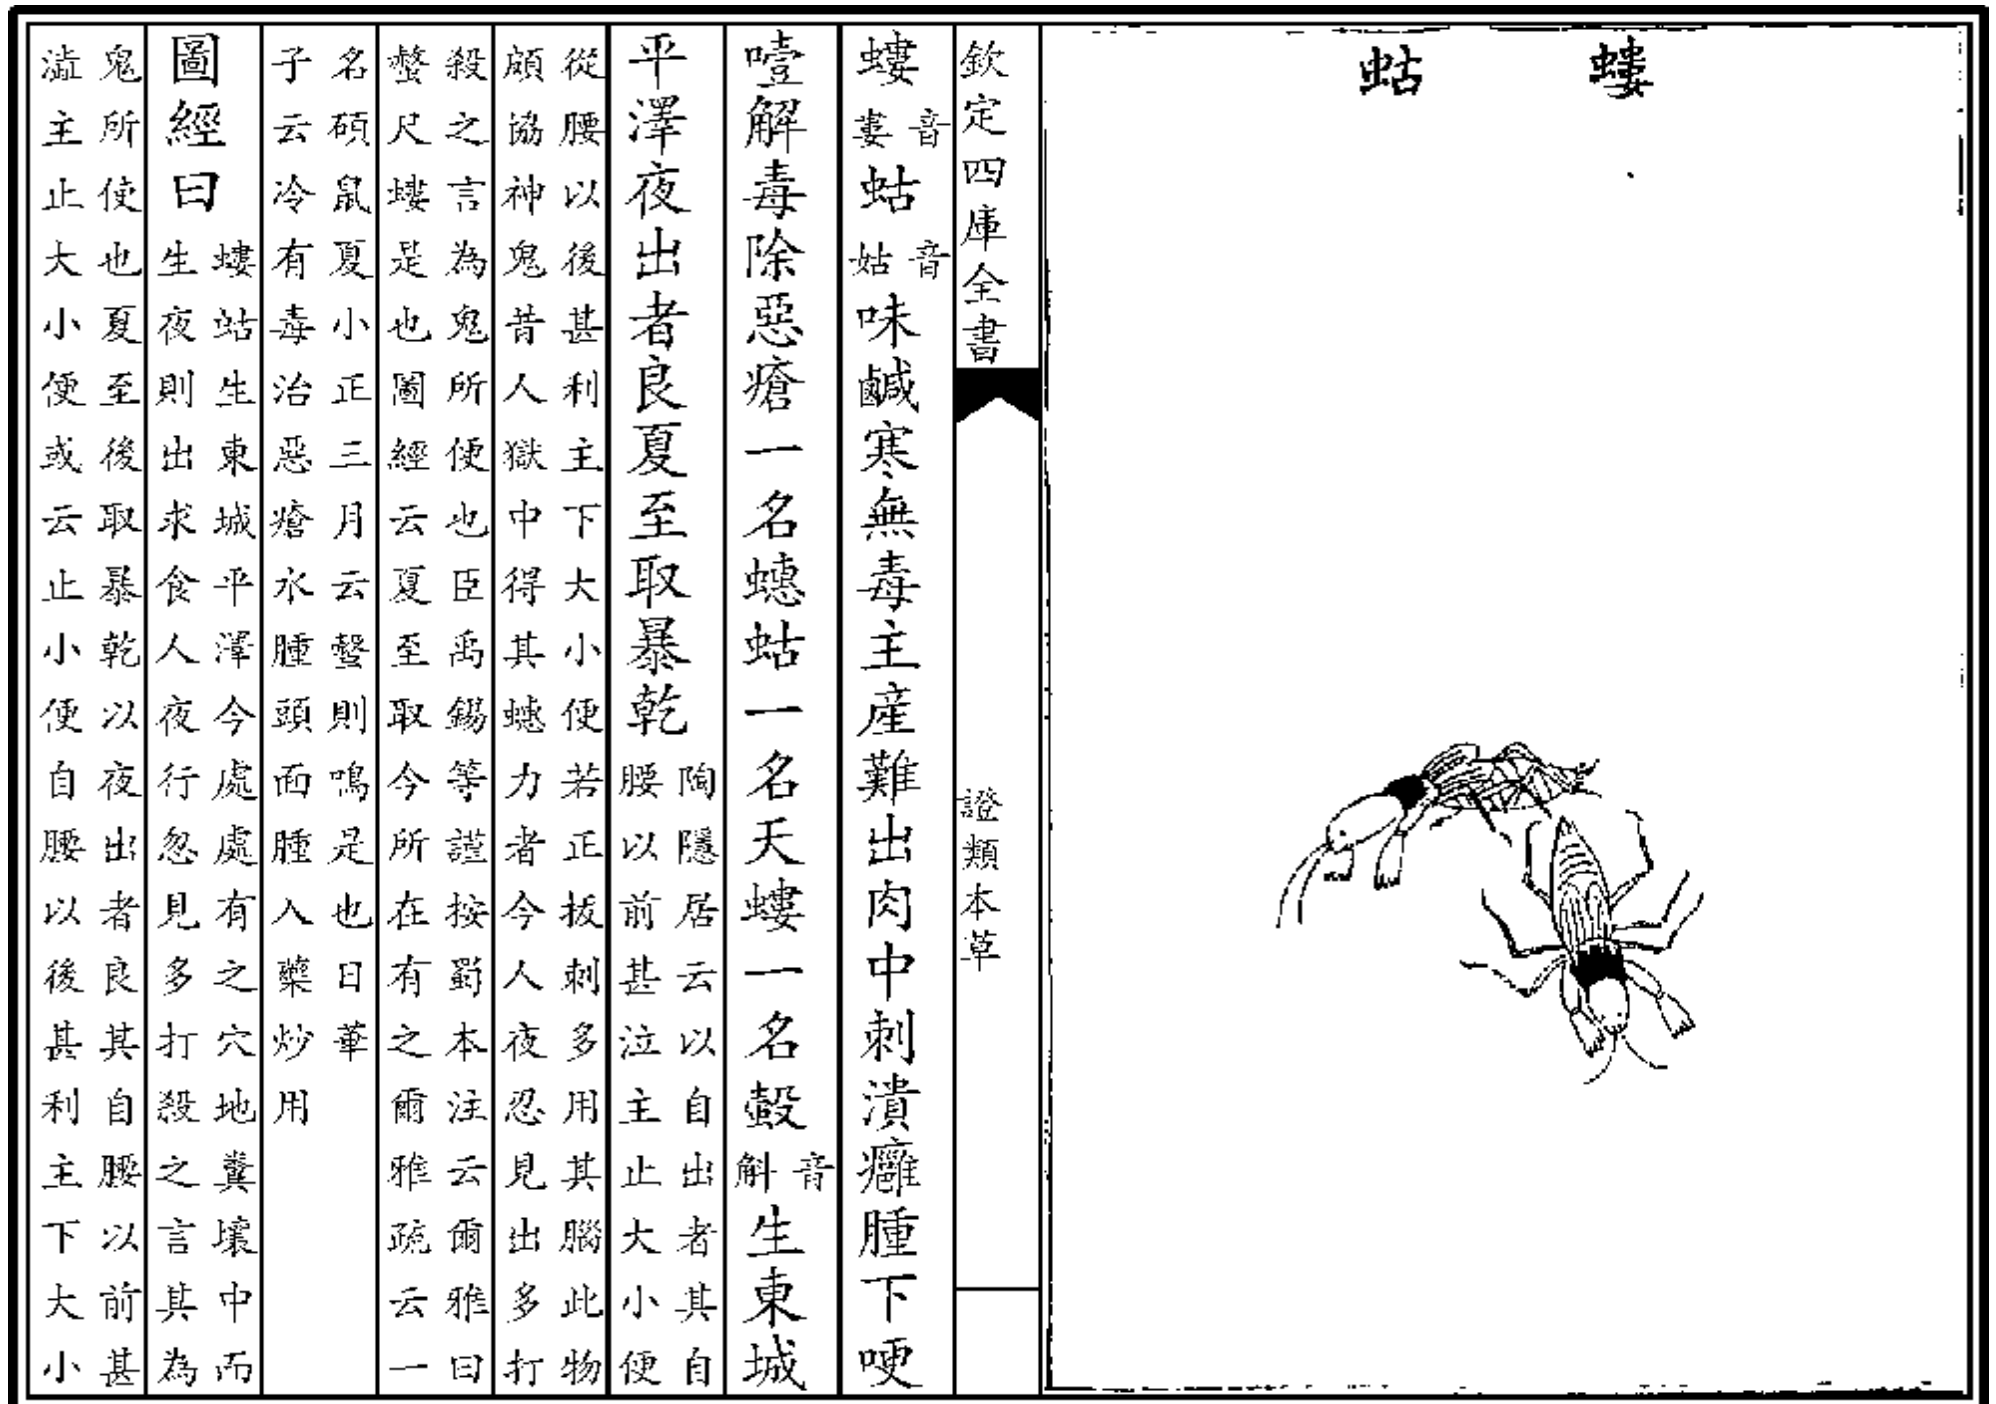 螻蛄
欽定四庫全書
證類本草
螻音婁蛄音姑味鹹寒無毒主産難出肉中刺潰癰腫下哽
噎解毒除惡瘡一名蟪蛄一名天螻一名螜音斛生東城
平澤夜出者良夏至取暴乾陶隱居云以自出者其自
腰以前甚泣主止大小便
從腰以後甚利主下大小便若正拔刺多用其腦此物
頗協神鬼昔人獄中得其蟪力者今人夜忍見出多打
殺之言為鬼所便也臣禹錫等謹按蜀本注云爾雅曰
螫尺螻是也圖經云夏至取今所在有之爾雅疏云一
名碩鼠夏小正三月云螜則鳴是也日華
子云冷有毒治惡瘡水腫頭面腫入藥炒用
圖經曰螻蛄生東城平澤今處處有之穴地糞壤中而
生夜則出求食人夜行忽見多打殺之言其為
鬼所使也夏至後取暴乾以夜出者良其自腰以前甚
澁主止大小便或云止小便自腰以後甚利主下大小